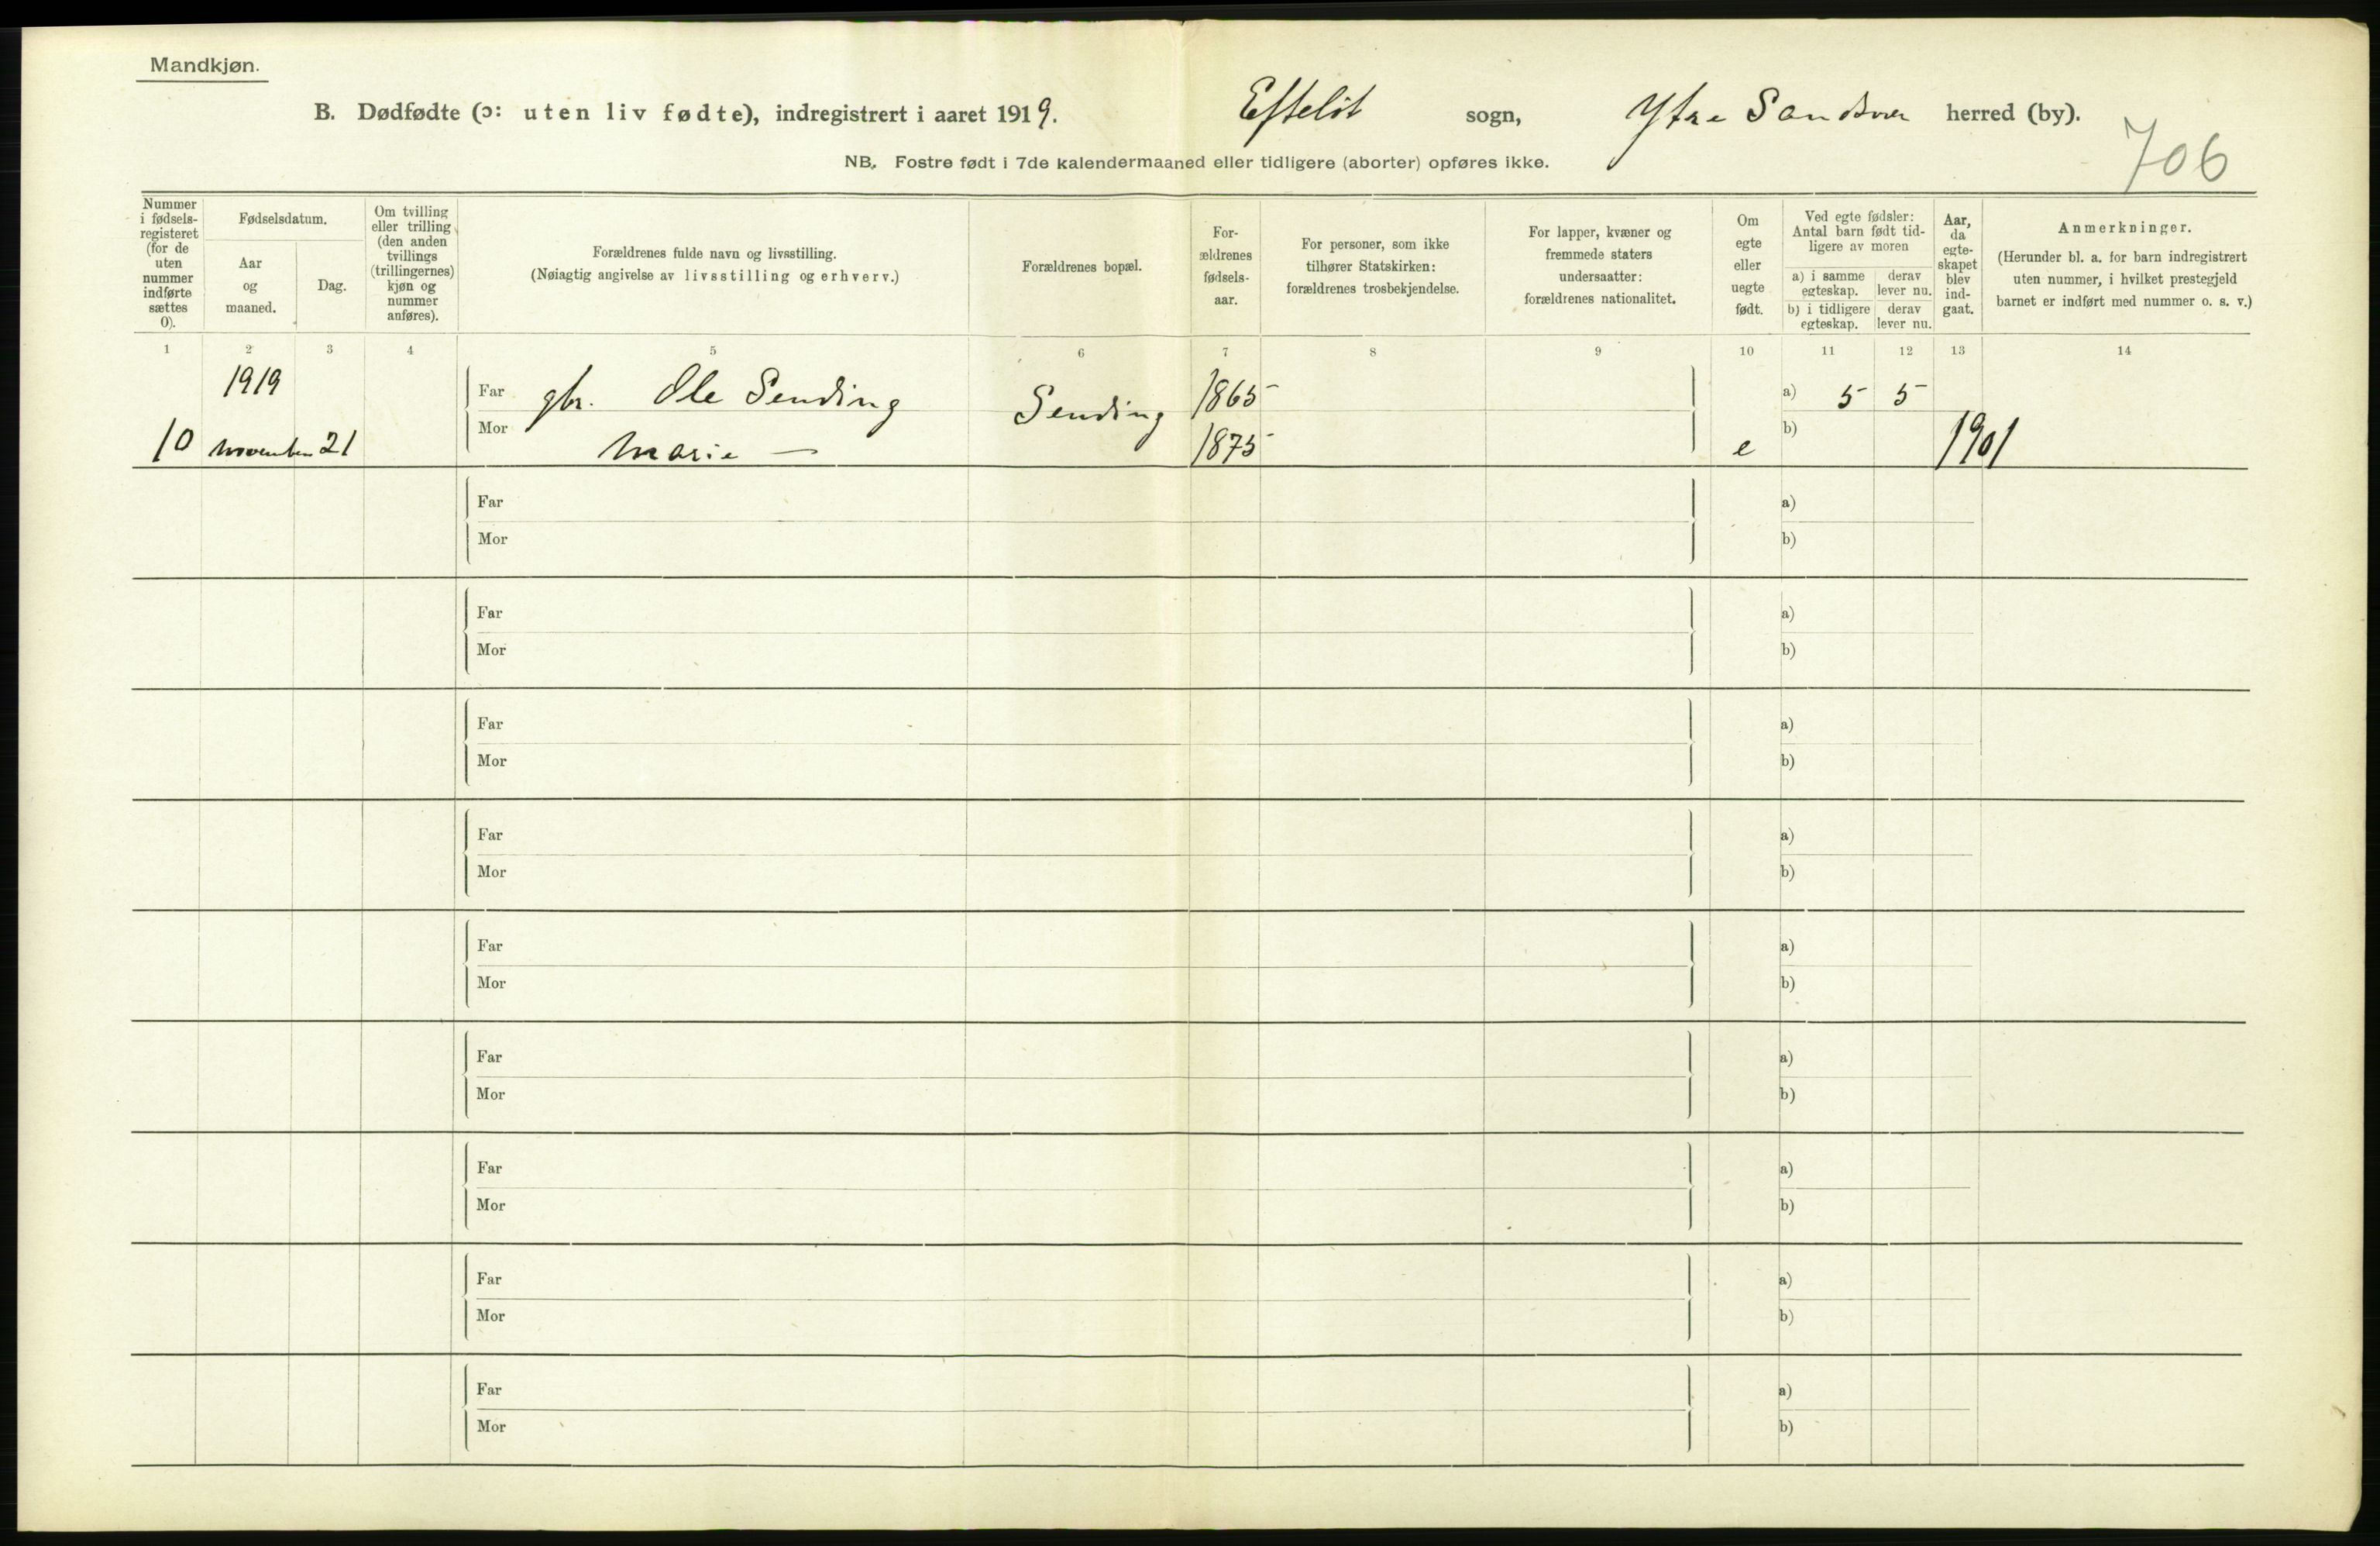 Mandkjøn.
B. Dødfødte (ɔ: uten liv fødte), indregistrert i aaret 1919. Efteløt sogn, Ytre Sandsver herred (by).
706
NB. Fostre født i 7de kalendermaaned eller tidligere (aborter) opføres ikke.
Nummer i fødsels-registeret (for de uten nummer indførte sættes 0).
Fødselsdatum.
Aar og maaned.
Dag.
Om tvilling eller trilling (den anden tvillings (trillingernes) kjøn og nummer anføres).
Forældrenes fulde navn og livsstilling.
(Nøiagtig angivelse av livsstilling og erhverv.)
Forældrenes bopæl.
For-ældrenes fødsels-aar.
For personer, som ikke tilhører Statskirken: forældrenes trosbekjendelse.
For lapper, kvæner og fremmede staters undersaatter: forældrenes nationalitet.
Om egte eller uegte født.
Ved egte fødsler: Antal barn født tid-ligere av moren
a) i samme egteskap.
derav lever nu.
b) i tidligere egteskap.
derav lever nu.
Aar, da egte-skapet blev ind-gaat.
Anmerkninger.
(Herunder bl. a. for barn indregistrert uten nummer, i hvilket prestegjeld barnet er indført med nummer o. s. v.)
1 2 3 4 5 6 7 8 9 10 11 12 13 14
1919 Far gbr. Ole Sending Sending 1865 a) 5 5
10 november 21 Mor Marie — 1875 e b) 1901
Far a)
Mor b)
Far a)
Mor b)
Far a)
Mor b)
Far a)
Mor b)
Far a)
Mor b)
Far a)
Mor b)
Far a)
Mor b)
Far a)
Mor b)
Far a)
Mor b)